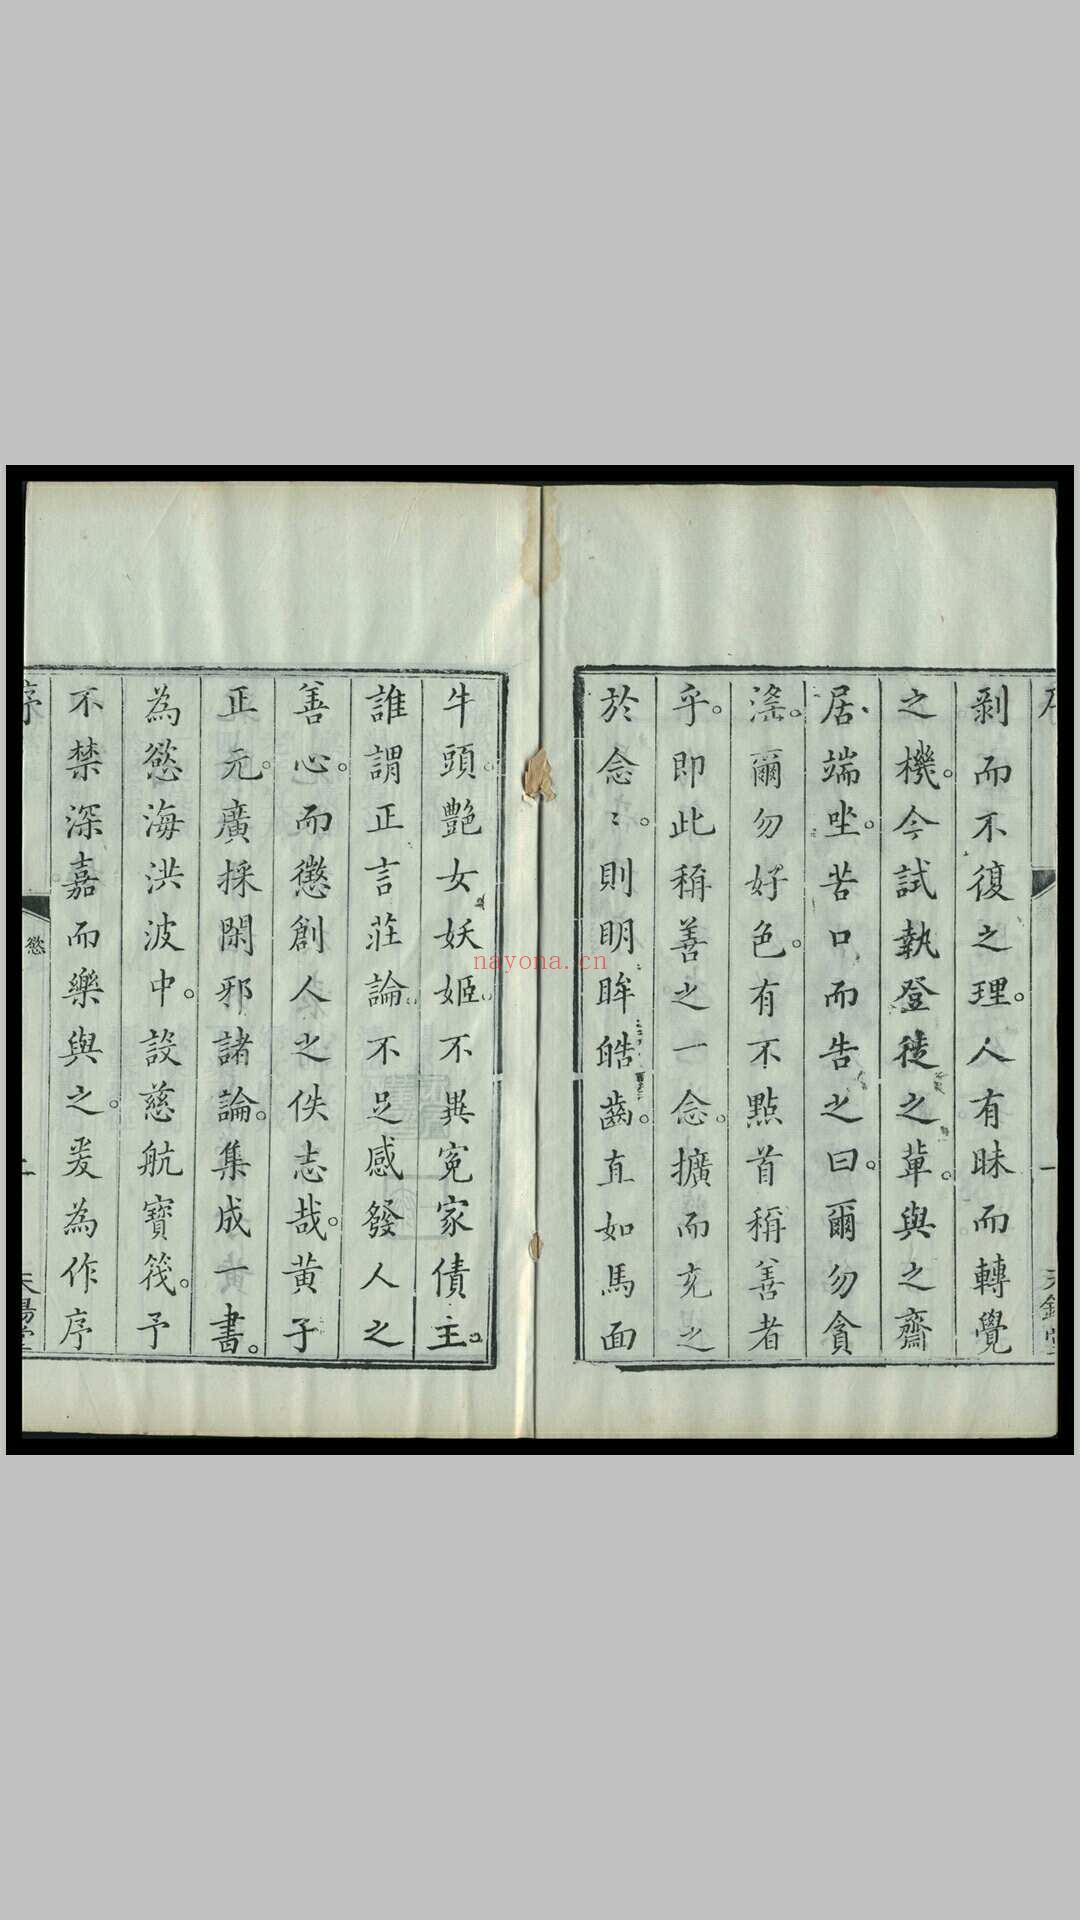 剥而不復之理。人有昧而轉覺
之機。今試執登徒之軰。與之齋
居端坐。苦口而告之曰。爾勿貪
滛。爾勿好色。有不點首稱善者
乎。即此稱善之一念。擴而充之
於念〻。則明眸皓齒。直如馬面
牛頭。艶女妖姬。不異寃家債主。
誰謂正言莊論。不足感發人之
善心。而懲創人之佚志哉。黄子
正元。廣採閑邪諸論。集成一書。
為慾海洪波中。設慈航寶筏。予
不禁深嘉而樂與之。爰為作序
慾
二
nayona.cn